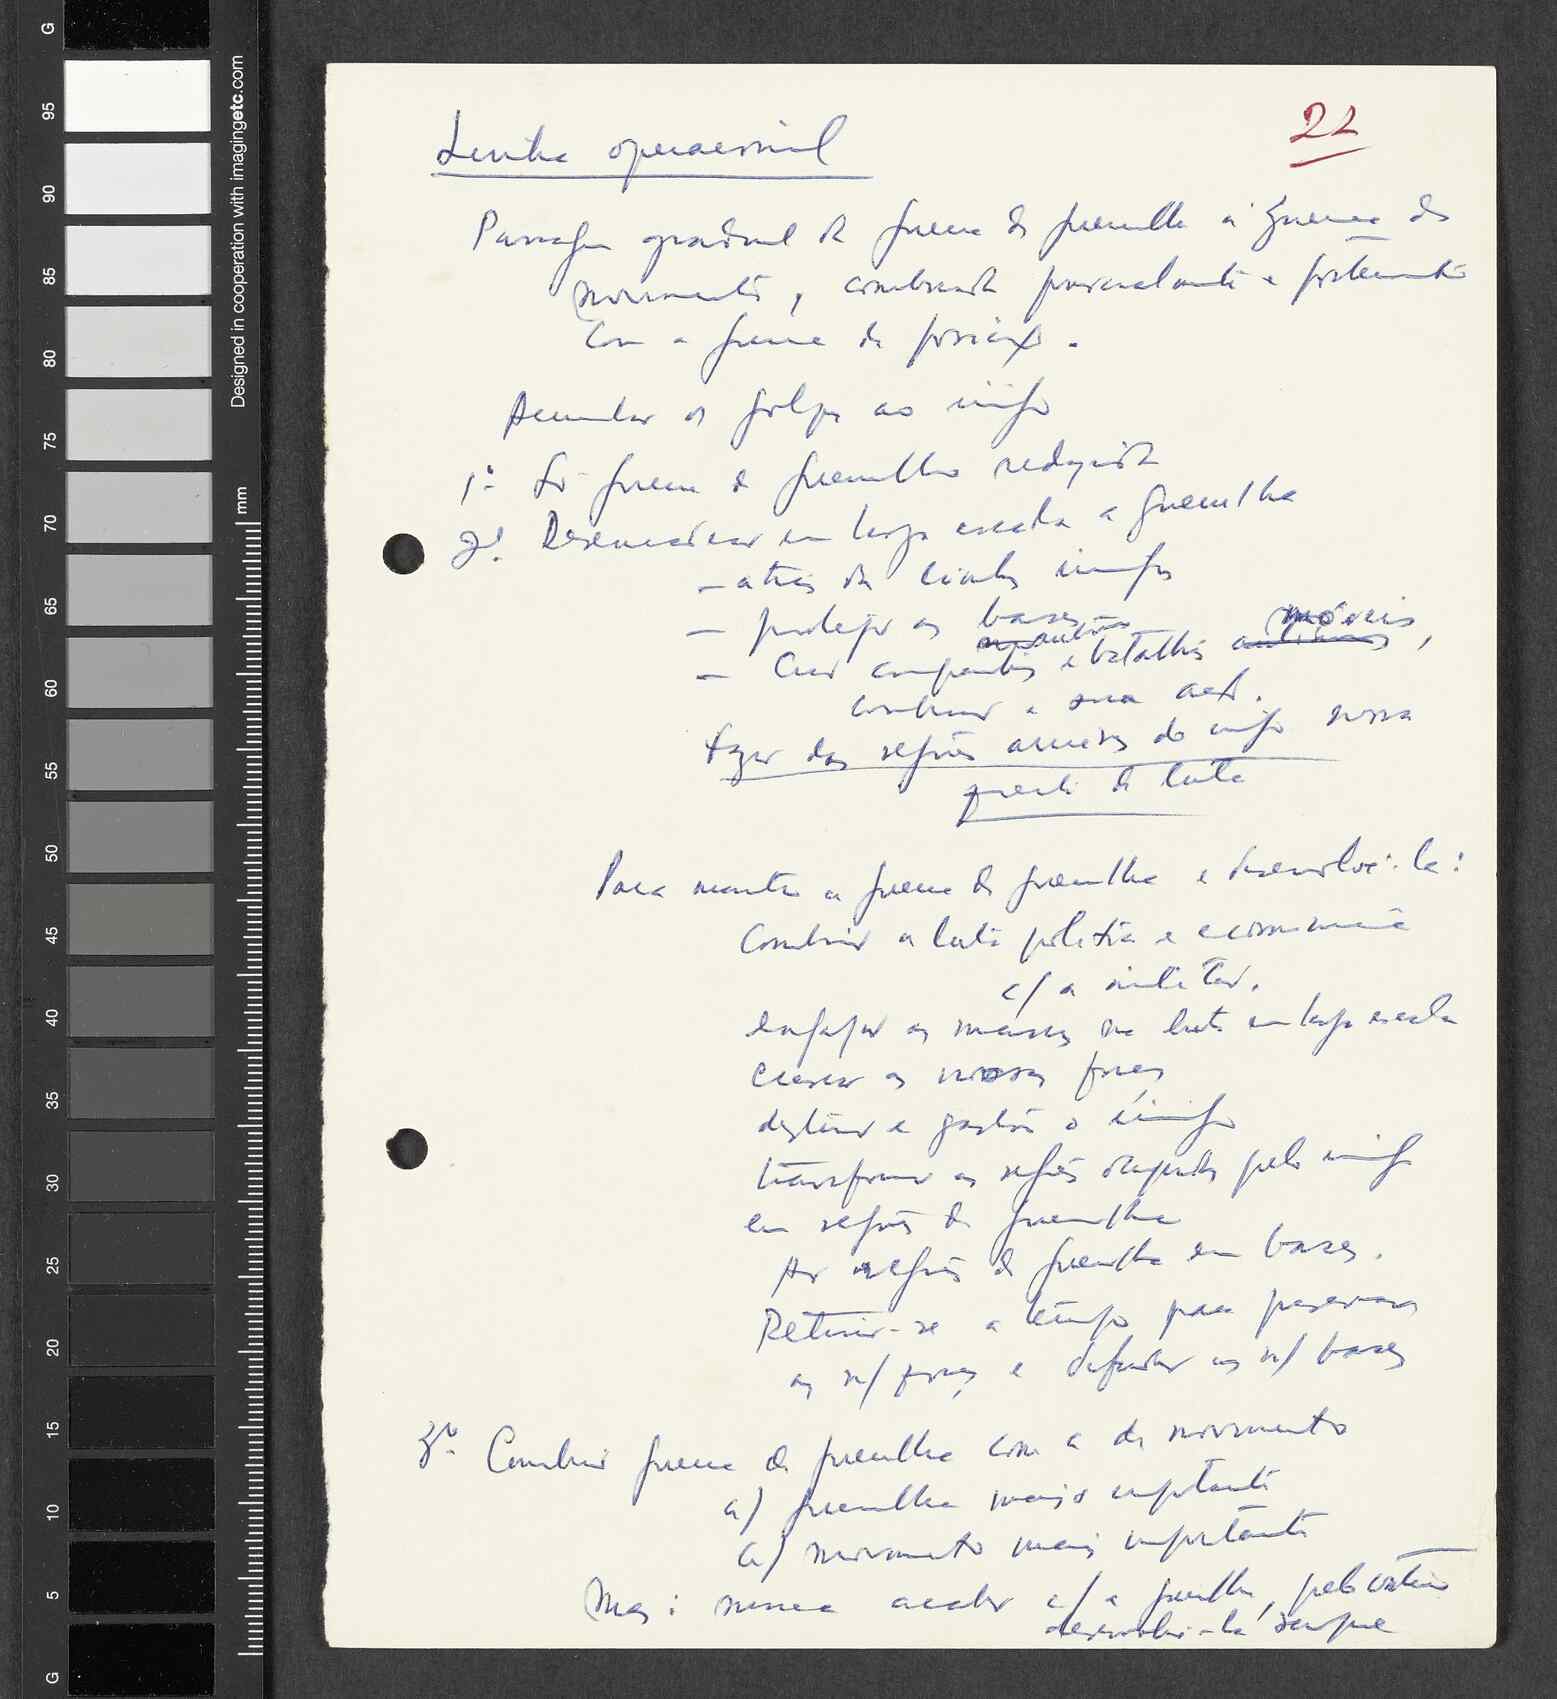 Linha operacional
22
Passagem gradual da guerra de guerrilha à guerra de
movimento, combinada parcialmente e fortemente
com a guerra de posição.
Acumular os golpes ao inimigo
1º Só guerra de guerrilha
2º Desencadear em larga escala a guerrilha
- atrás das linhas inimigas
- proteger as bases
- Criar companhias e batalhões móveis,
combinar a sua acção.
Fazer das regiões do inimigo nossa
frente de luta
Para manter a guerra de guerrilha e desenvolvê-la:
Combinar a luta política e económica
c/ a militar.
engajar as massas na luta em larga escala
crescer as nossas forças
destruir e gastar o inimigo
transformar as regiões ocupadas pelo inimigo
em regiões de guerrilha
As regiões de guerrilha em bases.
Retirar-se a tempo para preservar
as n/ forças e defender as n/ bases
3º Combinar guerra de guerrilha com a de movimento
a) guerrilha mais importante
a) movimento mais importante
Mas: nunca acabar c/ a guerrilha, pelo contrário
desenvolvê-la sempre
Designed in cooperation with imagingetc.com
mm
G
95
90
85
80
75
70
65
60
55
50
45
40
35
30
25
20
15
10
5
G